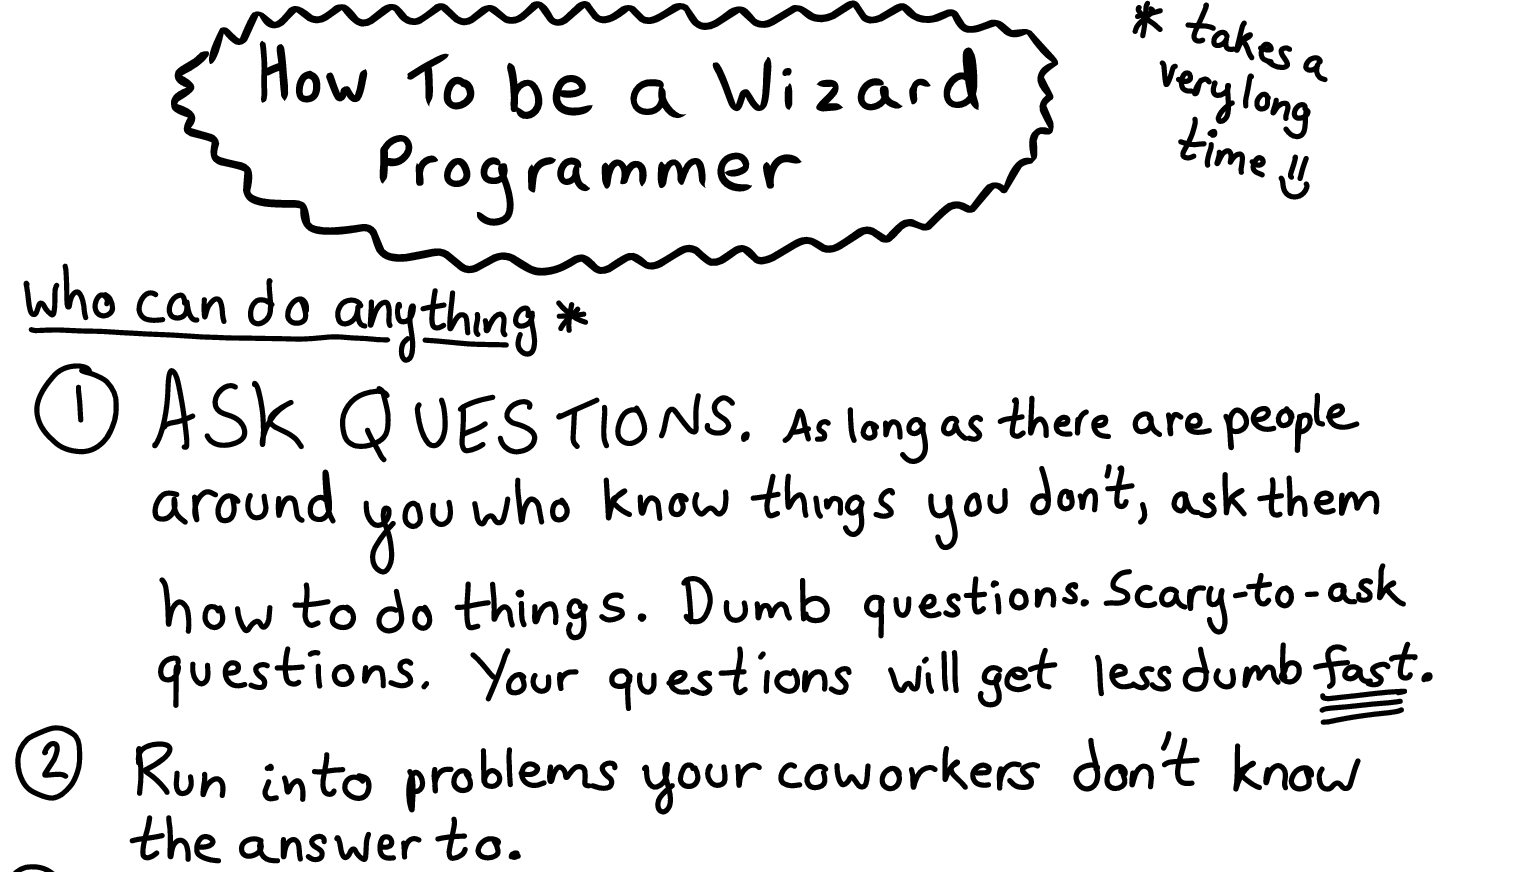 How To be a Wizard
Programmer
* takes a
very long
time !!
who can do anything *
1 ASK QUESTIONS. As long as there are people
around you who know things you don't, ask them
how to do things. Dumb questions. Scary-to-ask
questions. Your questions will get less dumb fast.
2 Run into problems your coworkers don't know
the answer to.